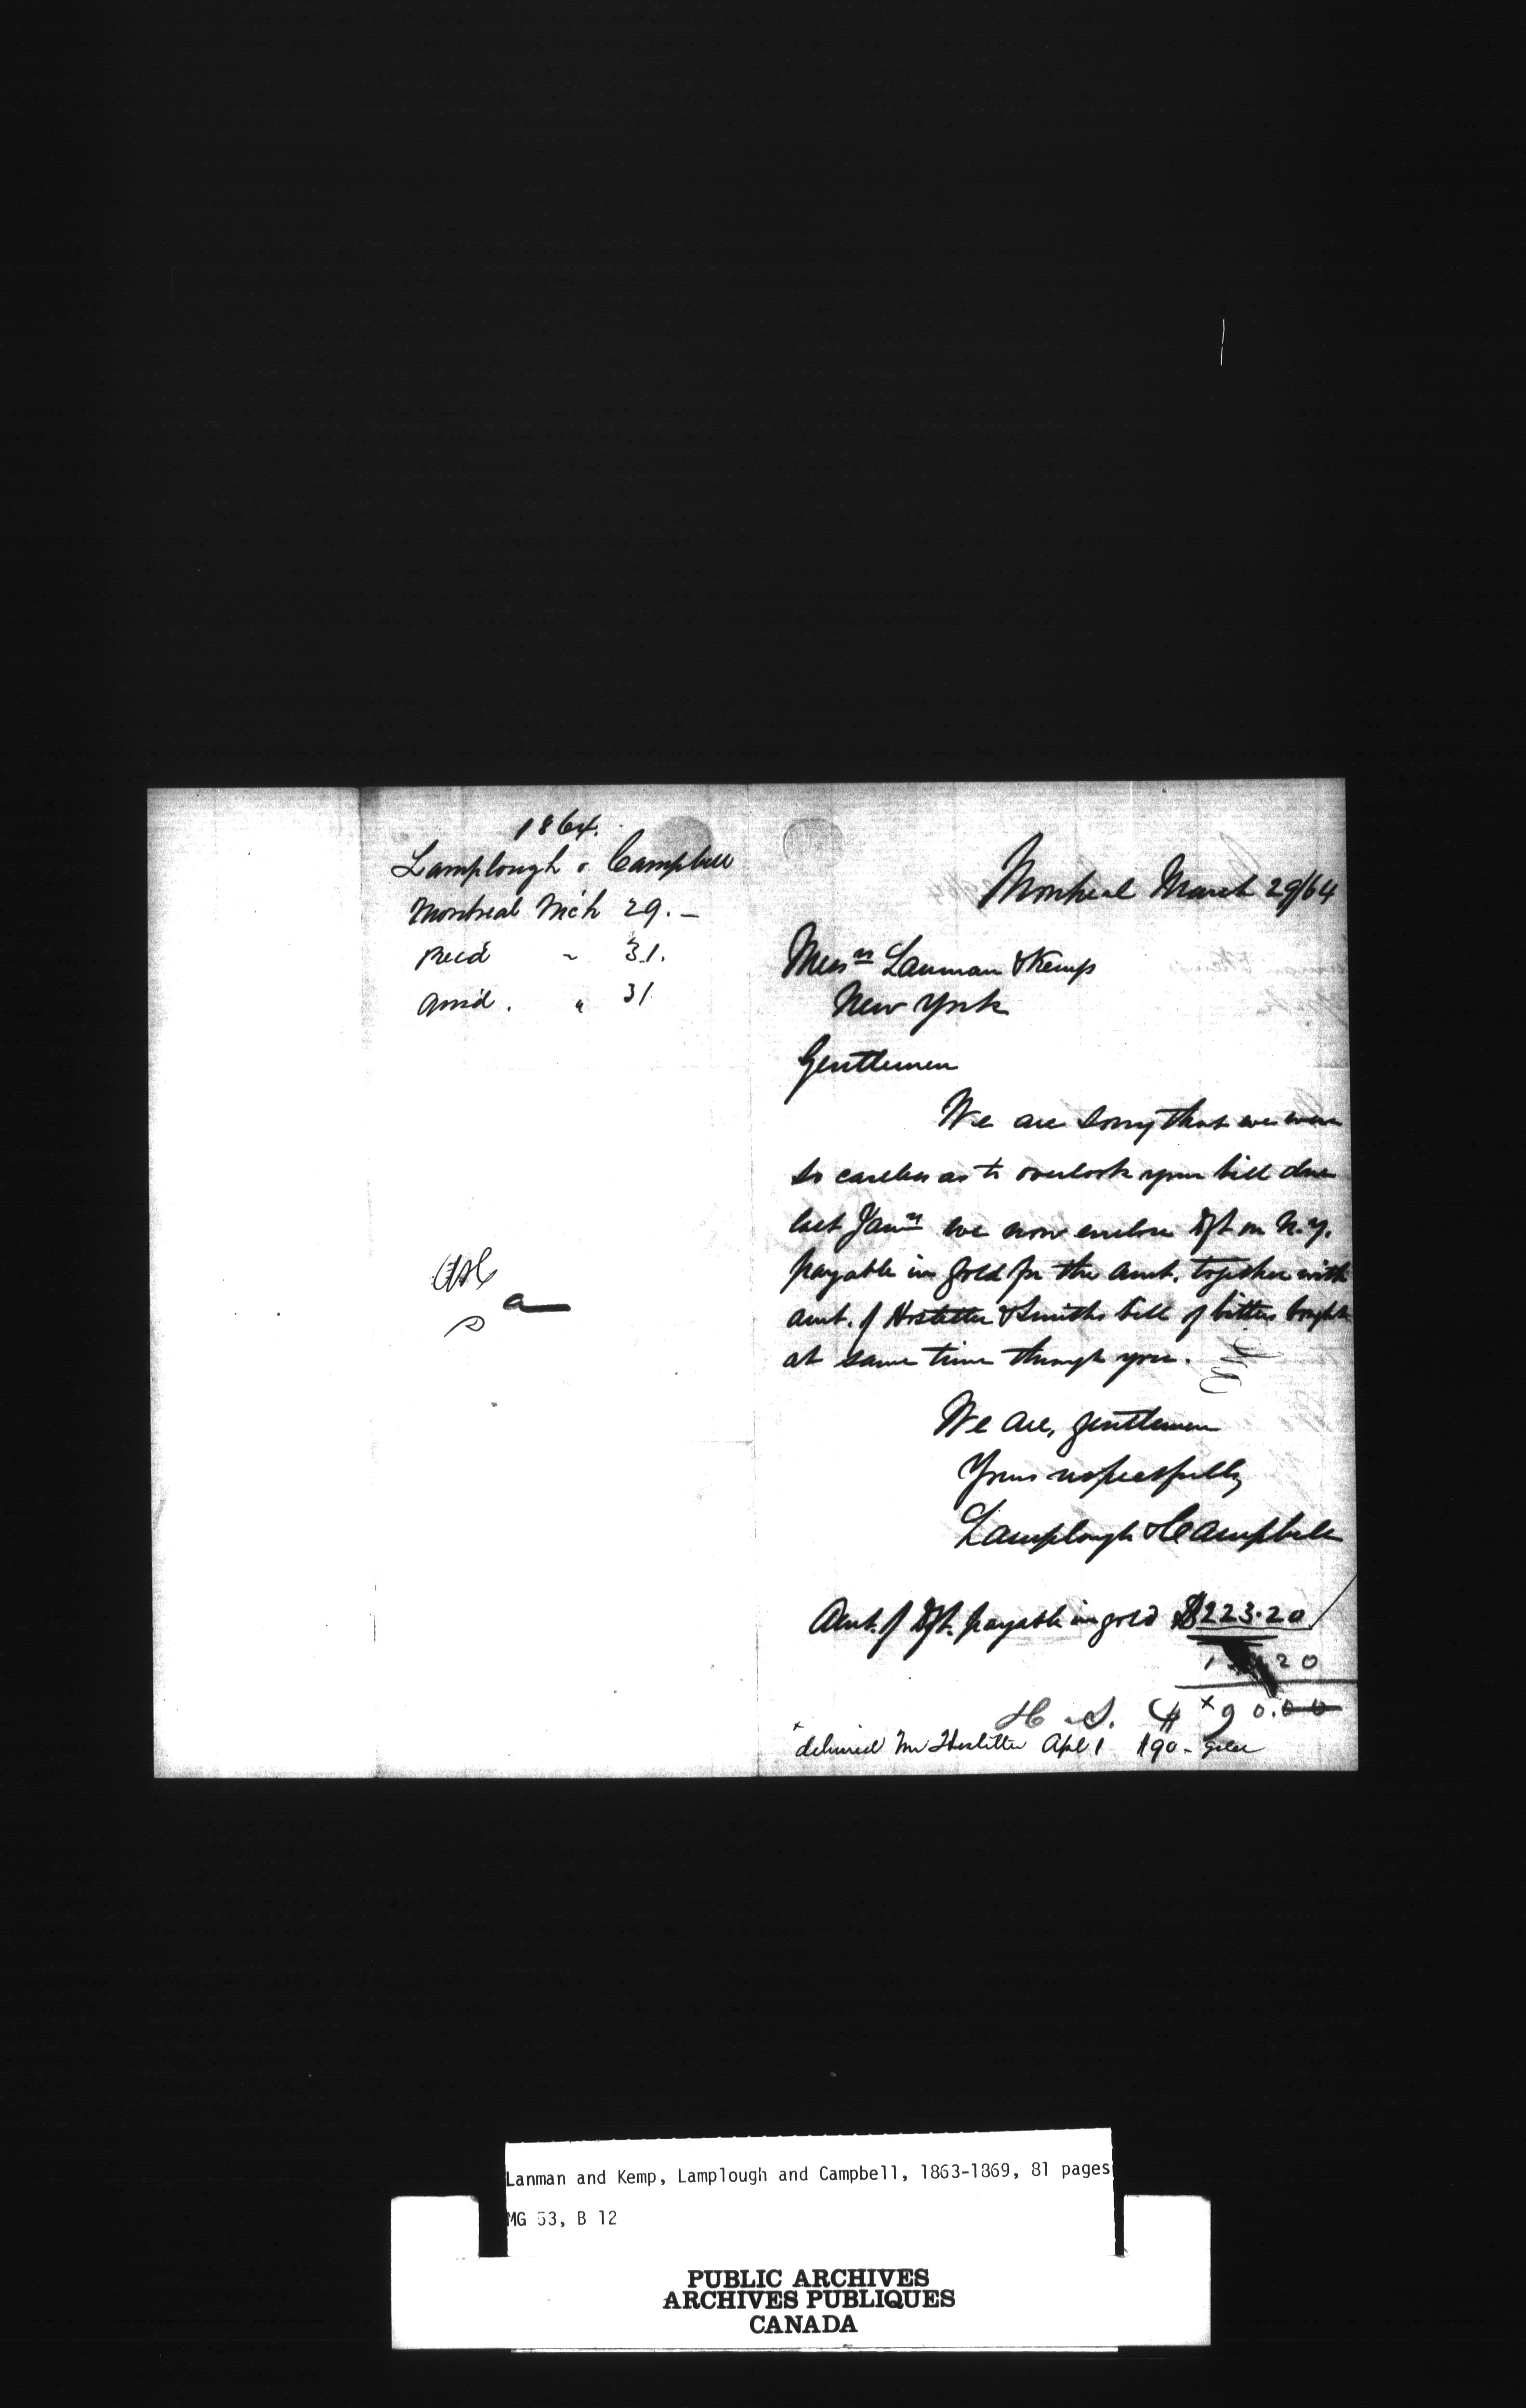 1864.
Lamplough & Campbell
Montreal Mch 29. –
Recd " 31.
Ansd. " 31
a
Montreal March 29/64
Messrs Lanman & Kemp
New York
Gentlemen
We are sorry that we were
so careless as to overlook your bill due
last Jany we now enclose Dft on N.Y.
payable in gold for the amt. together with
amt. of Hostetter & Smiths bill of bitters bought
at same time through you.
We are, gentlemen
Yours respectfully
Lamplough & Campbell
Amt. of Dft. payable in gold $223.20
20
H & S. $ x90.00
x delivered Mr Hostetter Apl 1 $90 – gold
Lanman and Kemp, Lamplough and Campbell, 1863-1869, 81 pages
MG 53, B 12
PUBLIC ARCHIVES
ARCHIVES PUBLIQUES
CANADA